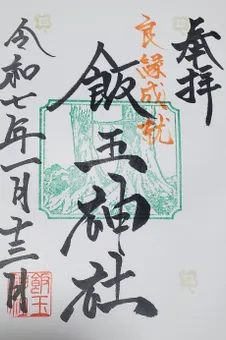 奉拝
良縁成就
飯玉神社
令和七年一月十三日
飯玉